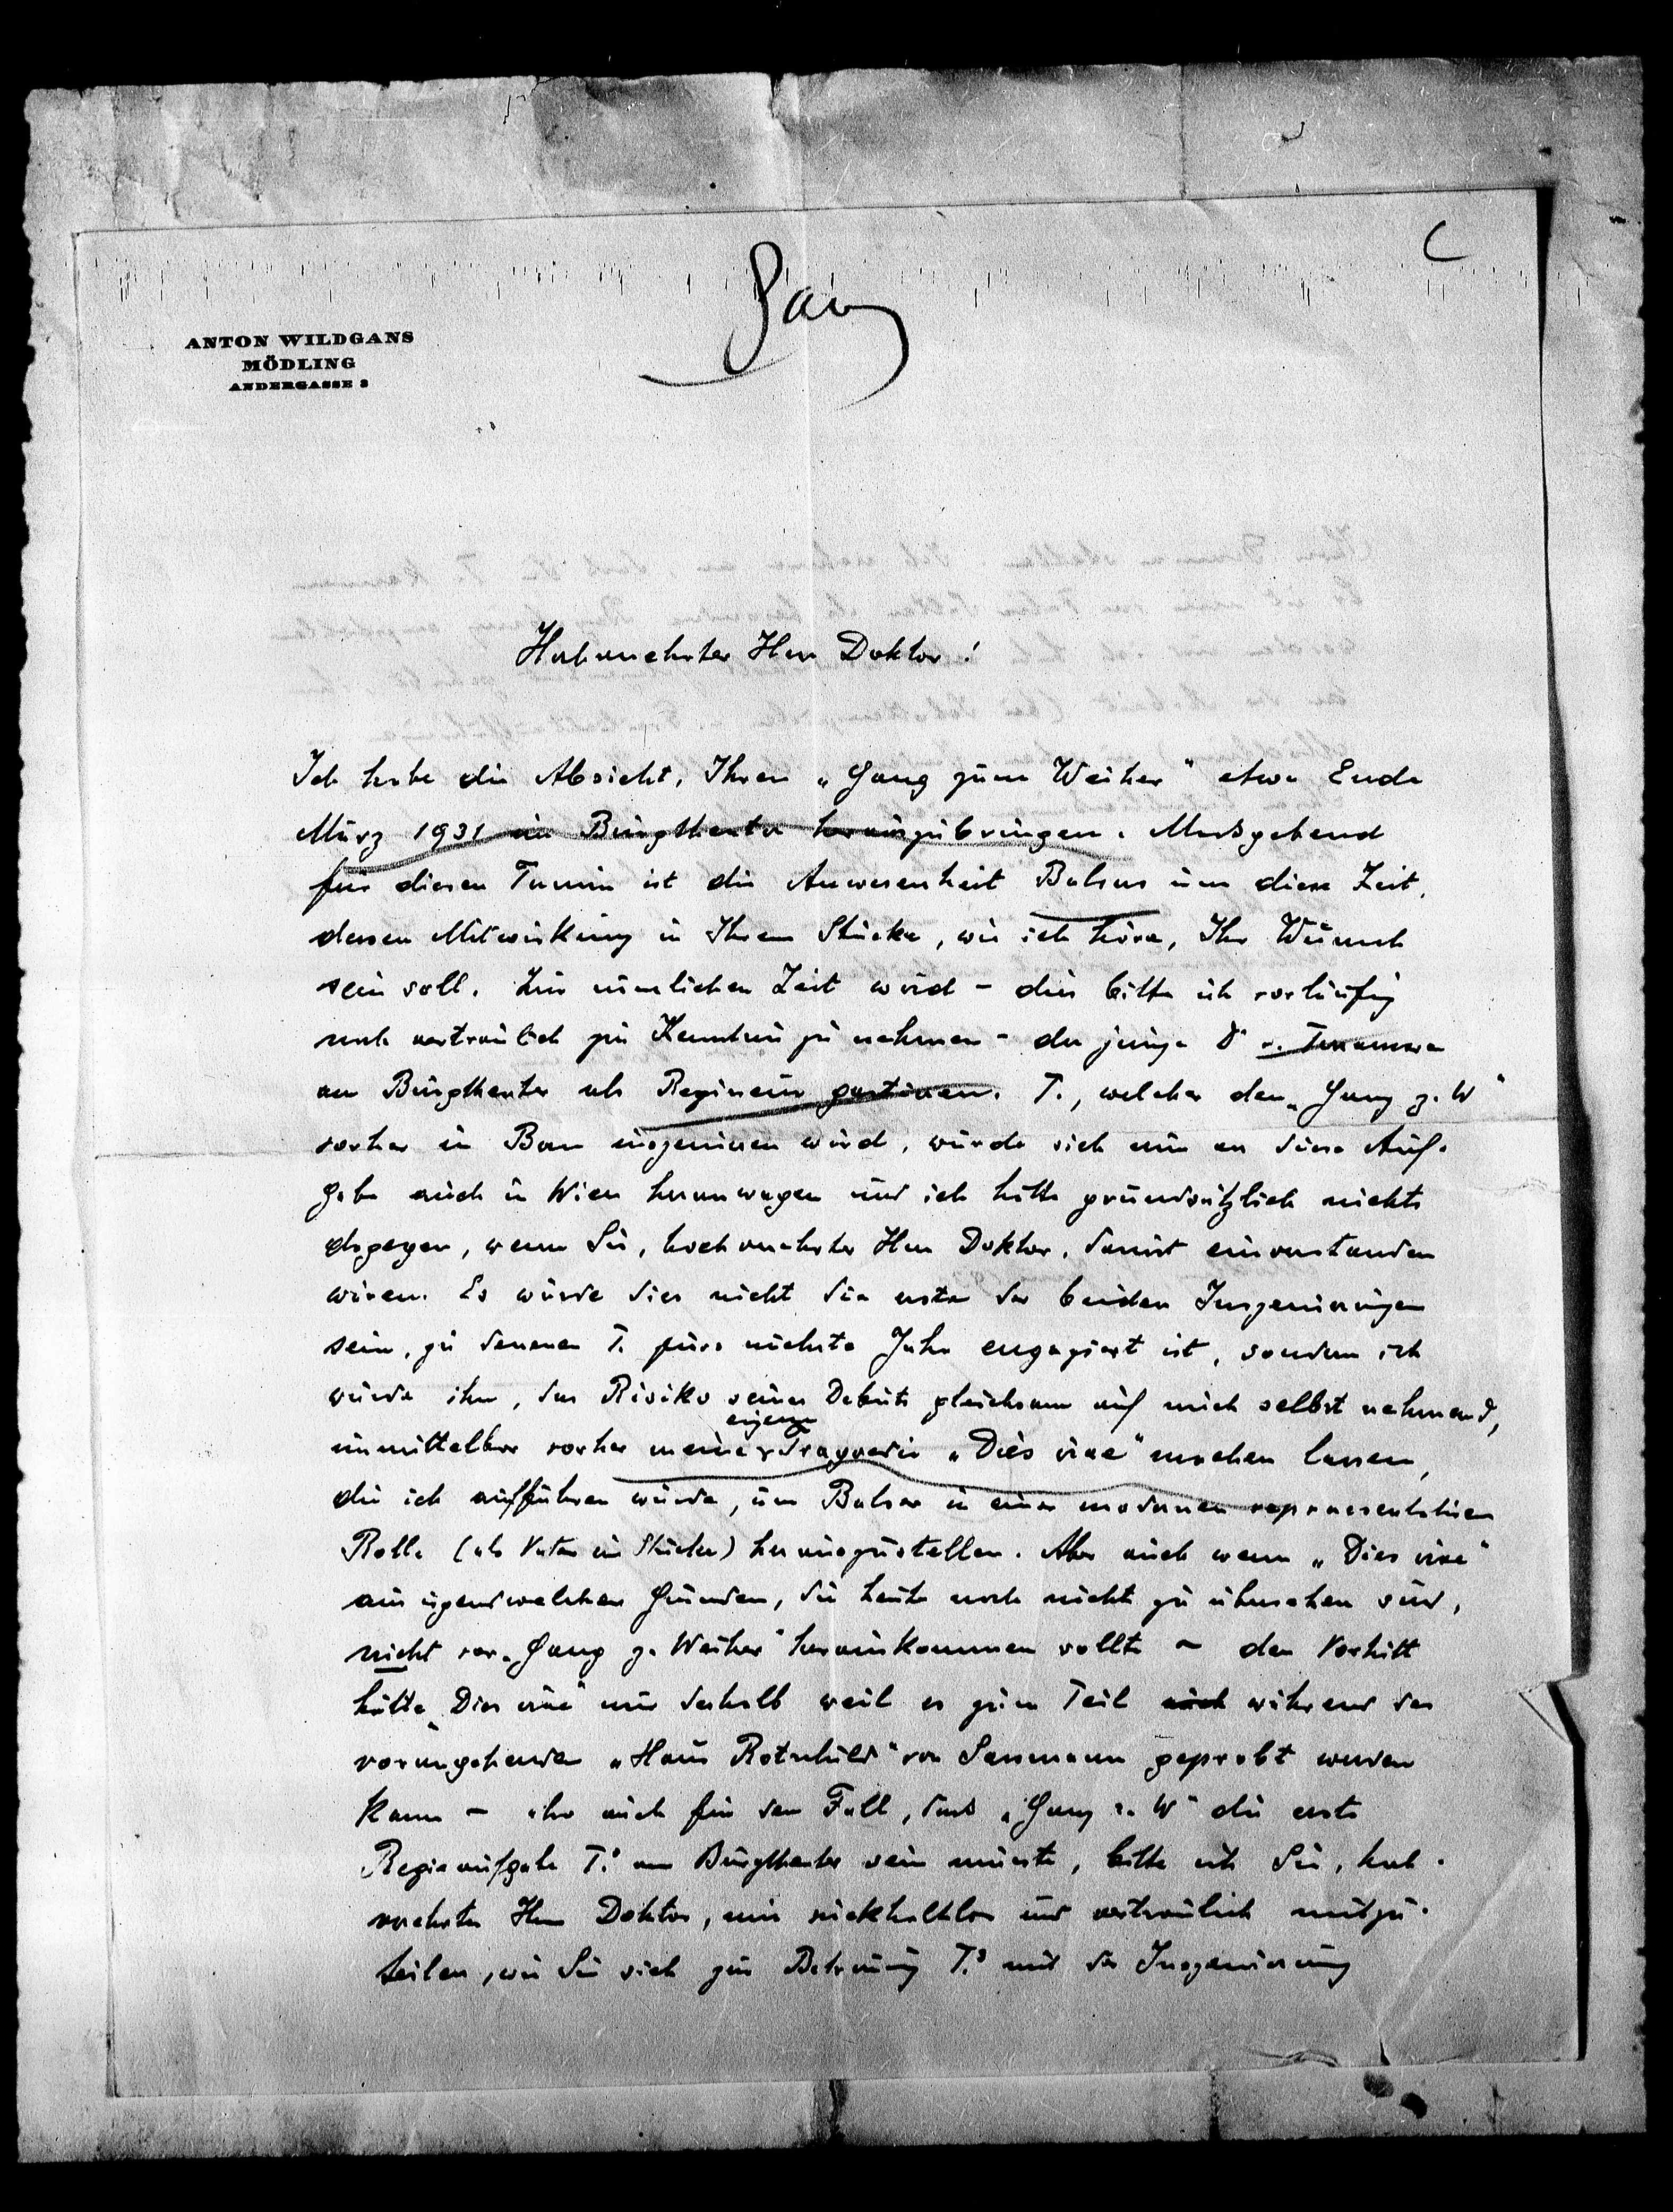 C
Gang
ANTON WILDGANS
MÖDLING
ANDERGASSE 3
Hochverehrter Herr Doktor!
Ich habe die Absicht, Ihren „Gang zum Weiher" etwa Ende
März 1931 im Burgtheater herauszubringen. Massgebend
für diesen Termin ist die Anwesenheit Balsers um diese Zeit,
dessen Mitwirkung in Ihrem Stücke, wie ich höre, Ihr Wunsch
sein soll. Zur nämlichen Zeit wird – dies bitte ich vorläufig
noch vertraulich zur Kenntnis zu nehmen – der junge Dr v. Terramare
am Burgtheater als Regisseur gastieren. T., welcher den „Gang z. W"
vorher in Bern inszenieren wird, würde sich nun an diese Auf-
gabe auch in Wien heranwagen und ich hätte grundsätzlich nichts
dagegen, wenn Sie, hochverehrter Herr Doktor, damit einverstanden
wären. Es würde dies nicht die erste der beiden Inszenierungen
sein, zu denen T. fürs nächste Jahr engagiert ist, sondern ich
würde ihn, das Risiko seines Debuts gleichsam auf mich selbst nehmend,
unmittelbar vorher meine eigene Tragoedie „Dies irae" machen lassen,
die ich aufführen würde, um Balser in einer modernen repraesentativen
Rolle (als Vater im Stücke) herauszustellen. Aber auch wenn „Dies irae"
aus irgendwelchen Gründen, die heute noch nicht zu übersehen sind,
nicht vor „Gang z. Weiher" herauskommen sollte – den Vortritt
hätte „Dies irae" nur deshalb weil es zum Teil während des
vorangehenden „Haus Rotschild" von Sassmann geprobt werden
kann – also auch für den Fall, dass „Gang z. W" die erste
Regieaufgabe T.s am Burgtheater sein müsste, bitte ich Sie, hoch-
verehrter Herr Doktor, mir rückhaltlos und vertraulich mitzu-
teilen, wie Sie sich zur Betrauung T.s mit der Inszenierung